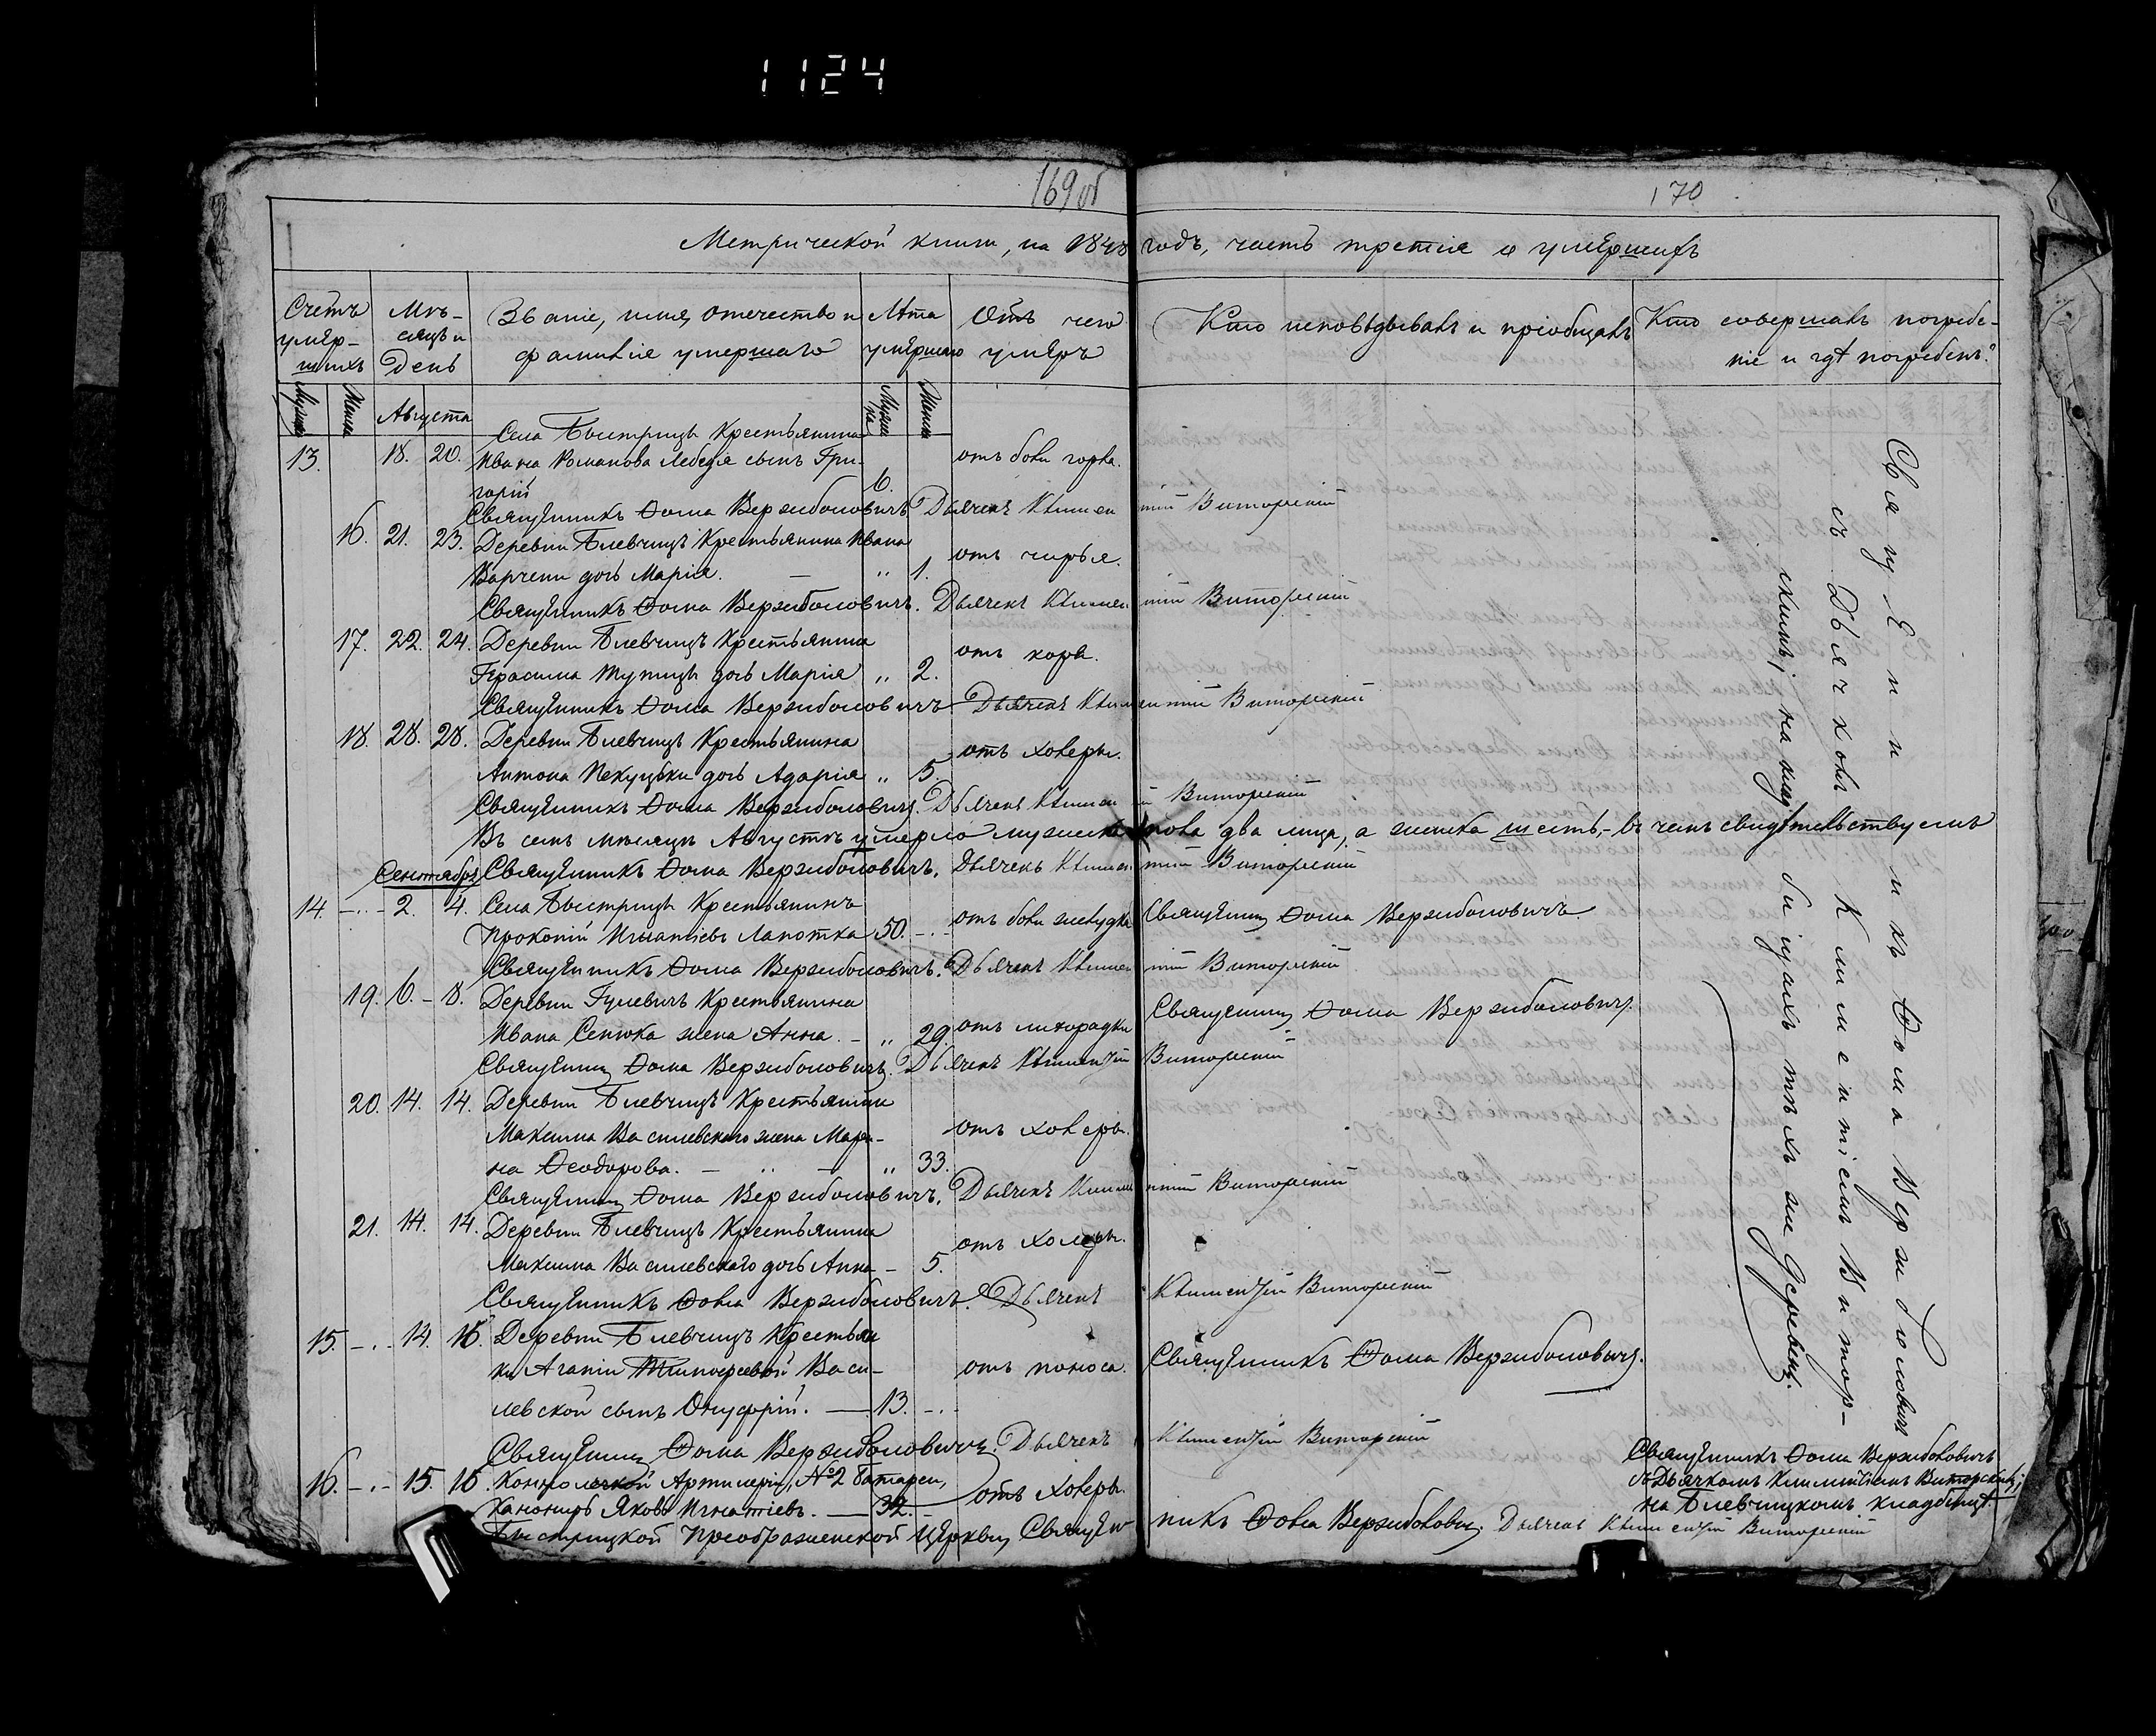 1124
169об
170
Метрической книги, на 1848 годъ, часть третія о умершихъ
Счетъ умер-шихъ
Мѣ-сяцъ и День
Званіе, имя, отечество и фамилія умершаго
Лѣта умершаго
Отъ чего умеръ
Кто исповѣдывалъ и пріобщалъ
Кто совершалъ погребе-ніе и гдѣ погребенъ.
Мужска
Женска
Августа
Мужска
Женска
Села Быстрицы Крестьянина
13. 18. 20. Ивана Романова Лебедя сынъ Гри- отъ боли горла.
горій 6.
Священникъ Ѳома Вержболовичъ Дьячекъ Климентій Виторскій
16. 21. 23. Деревни Блевчицъ Крестьянина Ивана
Варчени дочь Марія. — " 1. отъ чирья.
Священникъ Ѳома Вержболовичъ. Дьячекъ Климентій Виторскій
17. 22. 24. Деревни Блевчицъ Крестьянина отъ кори.
Герасима Тупицы дочь Марія " 2.
Священникъ Ѳома Вержболовичъ Дьячекъ Климентій Виторскій
18. 28. 28. Деревни Блевчицъ Крестьянина отъ холеры.
Антона Пекуцьки дочь Адарія " 5.
Священникъ Ѳома Вержболовичъ. Дьячекъ Климентій Виторскій
Въ семъ мѣсяцѣ Августѣ умерло мужеска пола два лица, а женска шесть,- въ чемъ свидѣтельствуемъ
Священникъ Ѳома Вержболовичъ. Дьячекъ Климентій Виторскій
Сентября
14. - 2. 4. Села Быстрицы Крестьянинъ
Прокопій Игнатіевъ Лапотка 50. - отъ боли желудка Священникъ Ѳома Вержболовичъ
Священникъ Ѳома Вержболовичъ. Дьячекъ Климентій Виторскій
19. 6. - 8. Деревни Гулевичъ Крестьянина
Ивана Сенюка жена Анна. - " 29. отъ лихорадки Священникъ Ѳома Вержболовичъ.
Священникъ Ѳома Вержболовичъ. Дьячекъ Климентій Виторскій
20. 14. 14. Деревни Блевчицъ Крестьянина
Максима Василевского жена Марі- отъ холеры.
на Ѳеодорова. — " — " 33.
Священникъ Ѳома Вержболовичъ. Дьячекъ Климентій Виторскій
21. 14. 14. Деревни Блевчицъ Крестьянина отъ холеры.
Максима Василевского дочь Анна - 5.
Священникъ Ѳома Вержболовичъ. Дьячекъ Климентій Виторскій
15. - 14. 16. Деревни Блевчицъ Крестьян
ки Агапіи Тимофеевой Васи- отъ поноса. Священникъ Ѳома Вержболовичъ.
левской сынъ Онуфрій. — 13. -
Священникъ Ѳома Вержболовичъ. Дьячекъ Климентій Виторскій
16. - 15. 16. Коннолегкой Артилеріи, №2 Батареи,
Канониръ Яковъ Игнатіевъ. — 32. - отъ холеры.
Быстрицкой Преображенской Церкви, Священникъ Ѳома Вержболовичъ. Дьячекъ Климентій Виторскій
Священникъ Ѳома Вержболовичъ
съ Дьячкомъ Климентіемъ Витор-
скимъ; на кладбищахъ тѣхъ же деревень.
Священникъ Ѳома Вержболовичъ
съ Дьячкомъ Климентіемъ Виторскимъ;
на Блевчицкомъ кладбищѣ